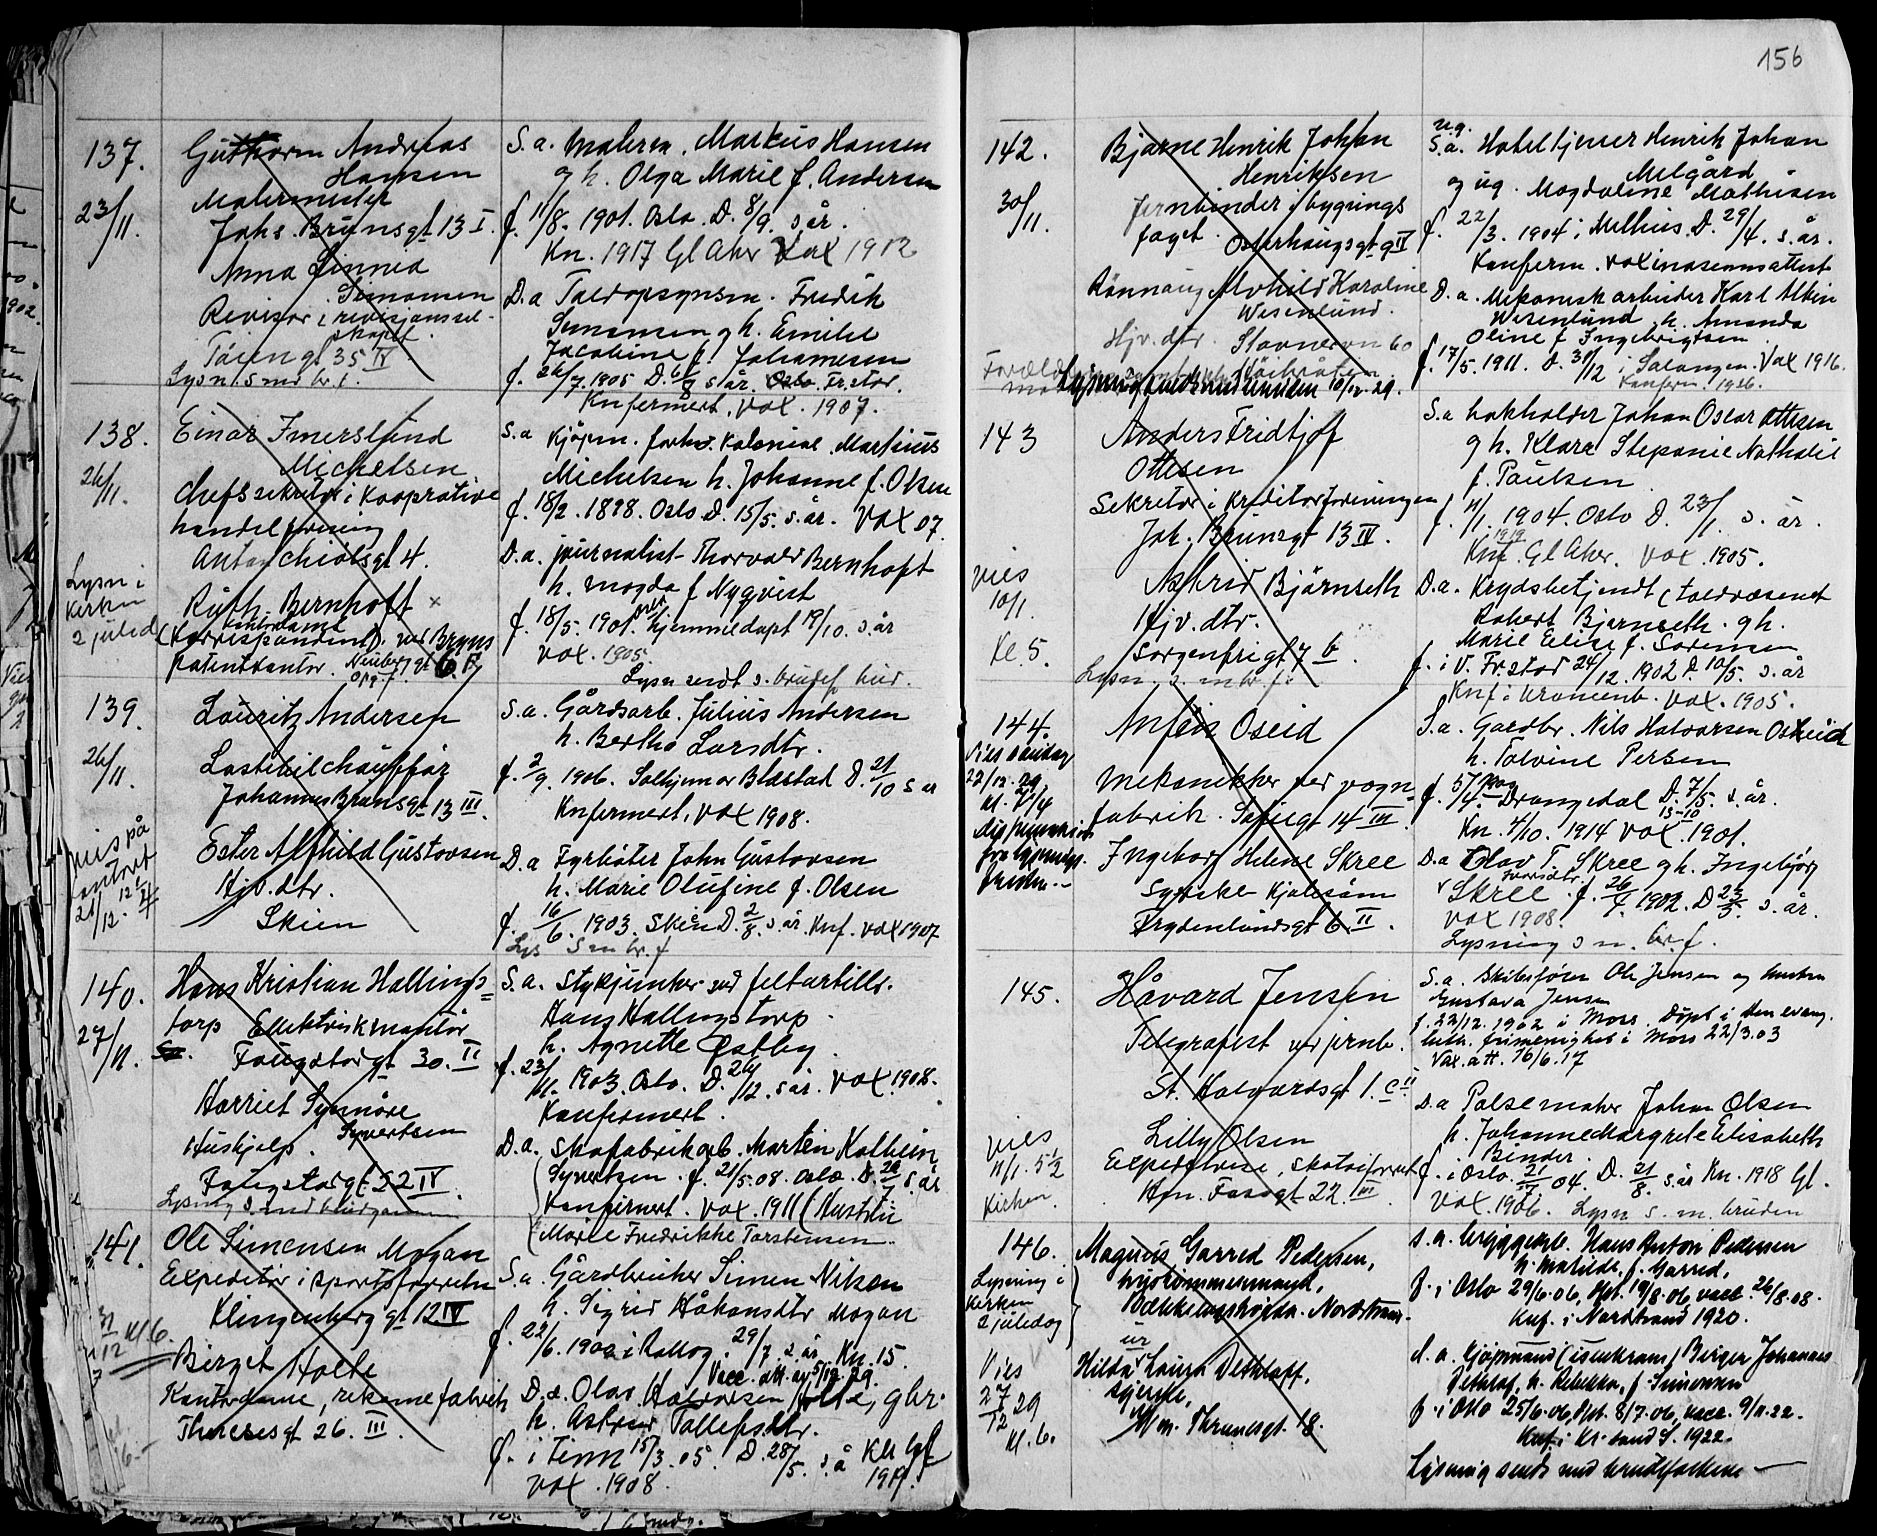 156
137.
23/11.
Guthorm Andreas
Hansen
Malermester
Johs. Brunsgt 13 I.
Anna Linnea
Simonsen
Revisor i revisjonssel-
skapet.
Tøiengt 35 IV
Lysn. s. m. br. f.
S. a. Maleren. Markus Hansen
og h. Olga Marie f. Andersen
f. 11/8. 1901. Oslo. D. 8/9. s. år.
Kn. 1917 Gl Aker Vax 1912
D. a Fredrik
Simonsen g h. Emilie
Jacobine f. Johannesen
f. 26/7. 1905 D. s år. Fr. stor.
Knfermert, vax. 1907.
138.
26/11.
Lysn i
Kirken
2 juled
Einar Imerslund
Michelsen
Chefssekretær i Kooprative
handelforening
Anton chiøtsgt 4.
Ruth Bernhoft
(Korrespondent) ved Bryns
patentkontor.
S. a Kjøpm. forhv. Kolonial. Martinus
Michelsen h. Johanne f. Olsen
f. 18/2. 1898. Oslo D. 15/5. s. år. Vax 07.
D. a. journalist Thorvald Bernhoft
h. Magda f Nyqvist
f. 18/5. 1901. hjemmedøpt 19/10. s. år
vax. 1905.
Lysn sendt s. brudef hud.
139.
26/11.
vies på
kontoret
21/12.
Lauritz Andersen
Lastebilchauffør
Johannes Brunsgt 13 III.
Ester Alfhild Gustavsen
Hjv. dtr.
Skien
S. a. Gårdsarb. Julius Andersen
h. Bertha Larsdtr.
f. 2/9. 1906. Solhjem or Blæstad D. 21/10 s år
Knfermert, vax 1908.
D. a Fyrbøter John Gustavsen
h. Marie Olufine f. Olsen
f. 16/6. 1903. Skien D. 2/8. s. år. Knf. vax 1907
Lys s m br. f
140.
27/11.
Hans Kristian Hallings-
torp Elektriskmontør
Fougstadgt 30. II
Harriet Synnøve
Syvertsen
Hushjelp.
Fougstadgt 22 IV.
Lysning s. med brudgommen
S. a. Stykjunker ved feltartill.
Hans Hallingstorp.
h. Agnette Østby.
f. 23/11. 1903. Oslo. D. 26/12. s år. Vax 1908.
Konfermert.
D. a. Skofabrikarb. Martin Kolbein
Syvertsen. f. 21/5. 08. Oslo. D. s. år
Konfirmert. Vax. 1911 (Hustru
(Marie Fredrikke Torstensen.
141.
31/12 kl 6.
Ole Simensen Mogan
Expeditør i sportsforretn
Klingenberg gt 12 IV
Birgit Holte
Kontordame, fabrik
Theresesgt 26. III.
S. a. Gårdbruker Simen Nilsen
h. Sigrid Håkonsdtr Mogan
f. 22/6. 1900 i Rollag. 29/7. s. år. Kn. 15.
Vacc. att. av 5/12 29.
D. a. Olav Halvorsen Holte, gbr.
h. Astrid Tollefsdtr.
f. i Tinn 15/3. 05. D. 28/5. s. å
1919.
Vax. 1908.
142.
30/11.
Bjarne Henrik Johan
Henriksen
Jernbinder i bygnings
faget. Osterhausgt 9 IV
Rønnaug Alvhild Karoline
Wesenlund.
Hjv. dtr. Stavnervn 60
10/12-29.
ug.
S. a. Hotel tjener Henrik Johan
Melgård
og ug. Magdaline Mathisen
f. 22/3. 1904 i Melhus. D. 29/4. s. år.
Konferm. Vaxinasionsattest
D. a. Mekanisk arbeider Karl Albin
Wesenlund h. Amanda
Oline f Ingebrigtsen
f. 17/5. 1911. D. 31/12 i Salangen. Vax 1916.
Konferm. 1926.
143
vies
10/1.
Kl 5.
Anders Fridtjof
Ottesen
Sekretær i Kreditorforeningen
Joh. Brunsgt 13 IV.
Astrid Bjørnseth
Hjv. dtr.
Sorgenfrigt 7 b.
Lysn. s. m br f.
S. a Lokholder Johan Oscar Ottesen
g h. Klara Stepanie Nathalie
f. Paulsen
f. 11/1. 1904. Oslo D. 23/1. s. år.
1919
Knf. Gl Aker. Vax. 1905.
D. a. Krydsbetjendt (toldvæsenet
Robert Bjørnseth. g h.
Marie Elise f. Sørensen
f. i V. Fr. stad 24/12. 1902 D. 10/5. s. år
Knf. i Uranienb. Vax. 1905.
144.
Vies søndag
22/12. 29
Anfein Oseid
Mekanikker ved vogn-
fabrik. Sofiegt 14 III.
Ingeborg Helene Skree
Syerske Kjolesøm
Frydenlundsgt 6 II.
S. a. Gardbr. Nils Halvorsen Oseid
h. Tolvine Persen
f. Drangedal D. 7/5. s. år.
Kn. 4/10. 1914 vax. 1901.
D. a Olav T. Skree g h. Ingebjør
Skree f. 1902. D s. år.
Vax 1908.
Lysning s m. br. f.
145.
vies
11/1. 5 1/2
Kirken
Håvard Jensen
Telegrafist ved jernb.
St. Halvardsgt 1. c II
Lilly Olsen
Expeditrise, skotøiforret
Hm. Fossgt 22 III
S. a. Skibsfører Ole Jensen og hustru
Gustava Jensen
f. 22/12. 1902 i Moss. Døpt i den evang.
luth. frimenighet i Moss 22/3.03
Vax. att. 16/6. 17
D. a Pølsemaker Johan Olsen
h. Johanne Margrete Elisabeth
Binder.
f. i Oslo. 04. D. 21/8. s år Kn. 1918 Gl.
Vax. 1906. Lysn s. m. bruden
146.
Lysning i
Kirken
2 juledag
Vies
27/12 29
kl. 6.
Magnus Garred Pedersen,
Bækkelagshøgda. Nordstrand.
Hilda Laura Dethloff,
syerske,
M m. Thranesgt. 18.
s. a. bryggearb. Hans Anton Pedersen
h. Matilde, f. Garred,
f. i Oslo 29/6.06, dpt. 19/8.06, vacc. 26/8.08.
Knf. i Nordstrand 1920.
d. a. kjøpmand (isenkram) Birger Johannes
Dethlof, h. Rebekka, f. Simonsen
f. i Oslo 25/6.06, dpt. 8/7.06, vacc. 9/11.22.
Knf. i Kr. sand S. 1922.
Lysning sends med brudefolkene